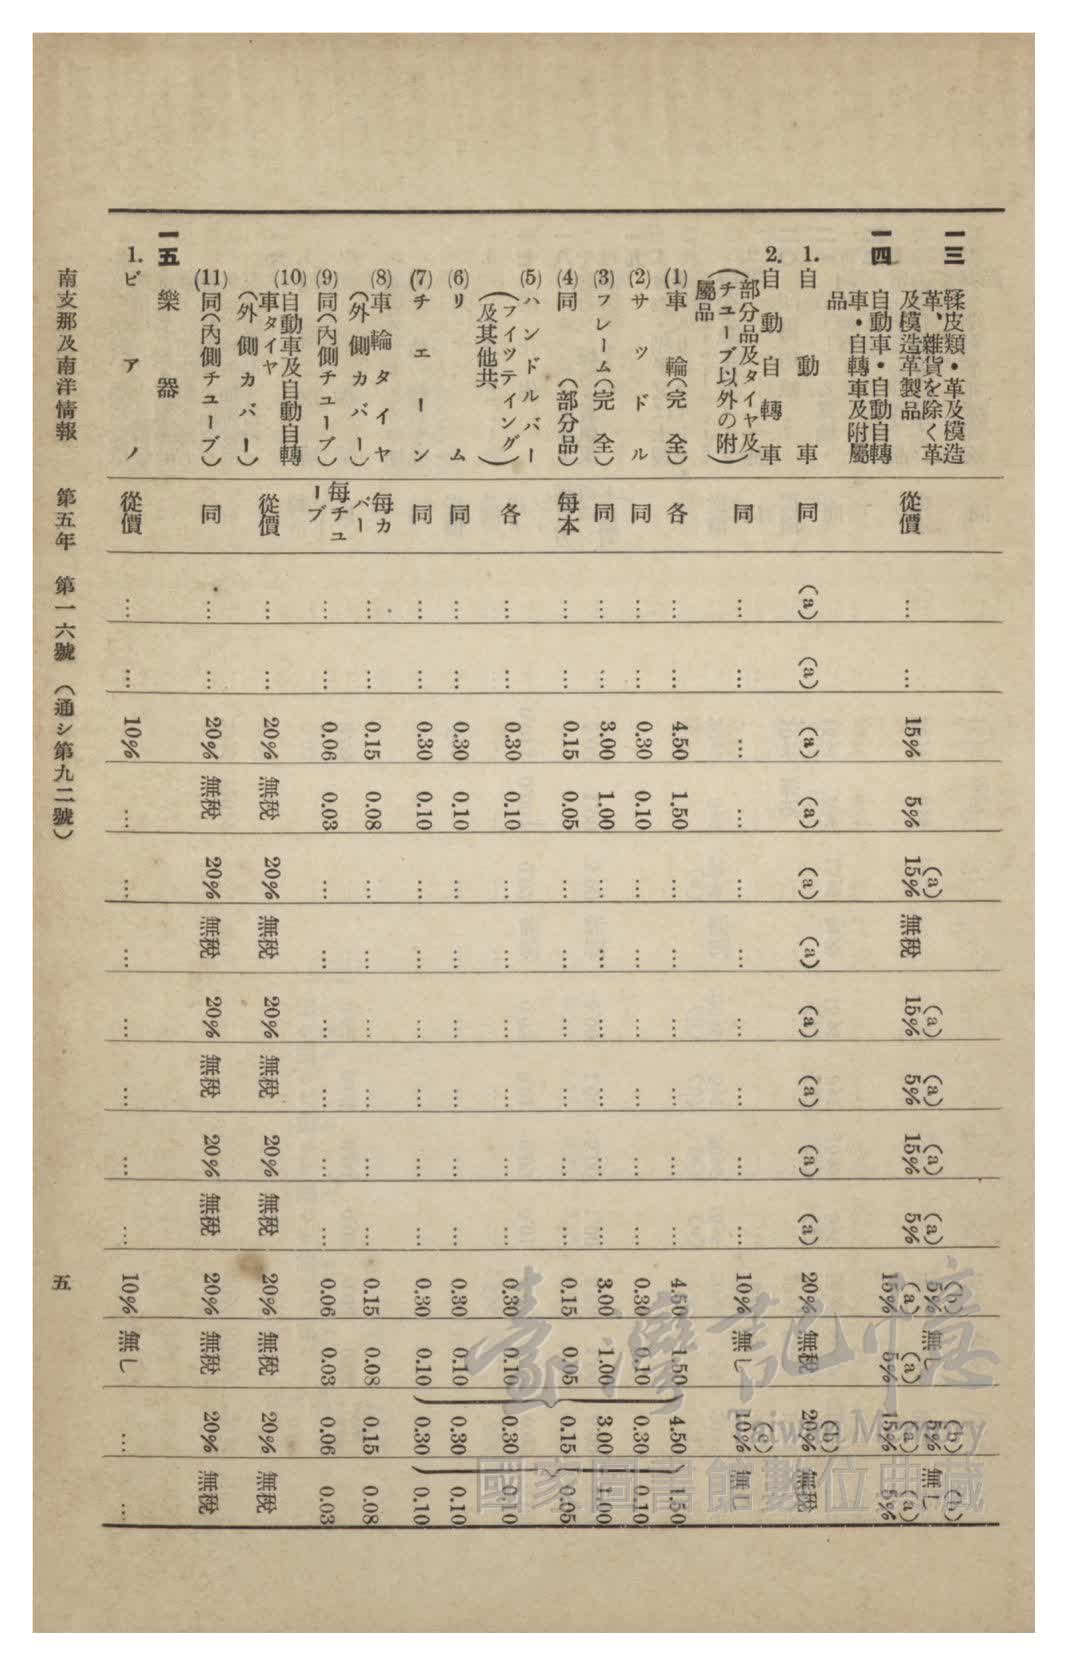 一三 鞣皮類・革及模造革、雜貨を除く革及模造革製品 從價 … … 15% 5% (a)15% 無稅 (a)15% (a)5% (a)15% (a)5% (b)5% (a)15% 無し (a)5% (b)5% (a)15% (b)無し (a)5%
一四 自動車・自動自轉車・自轉車及附屬品
1. 自動車 同 (a) (a) (a) (a) (a) (a) (a) (a) (a) (a) 20% 無稅 (b)20% 無稅
2. 自動自轉車(部分品及タイヤ及チューブ以外の附屬品) 同 … … … … … … … … … … 10% 無し (c)10% 無し
(1) 車輪(完全) 各 … … 4.50 1.50 … … … … … … 4.50 1.50 4.50 1.50
(2) サッドル 同 … … 0.30 0.10 … … … … … … 0.30 0.10 0.30 0.10
(3) フレーム(完全) 同 … … 3.00 1.00 … … … … … … 3.00 1.00 3.00 1.00
(4) 同(部分品) 每本 … … 0.15 0.05 … … … … … … 0.15 0.05 0.15 0.05
(5) ハンドルバー(フイッティング及其他共) 各 … … 0.30 0.10 … … … … … … 0.30 0.10 0.30 0.10
(6) リム 同 … … 0.30 0.10 … … … … … … 0.30 0.10 0.30 0.10
(7) チエーン 同 … … 0.30 0.10 … … … … … … 0.30 0.10 0.30 0.10
(8) 車輪タイヤ(外側カバー) 每カバー … … 0.15 0.08 … … … … … … 0.15 0.08 0.15 0.08
(9) 同(內側チューブ) 每チューブ … … 0.06 0.03 … … … … … … 0.06 0.03 0.06 0.03
(10) 自動車及自動自轉車タイヤ(外側カバー) 從價 … … 20% 無稅 20% 無稅 20% 無稅 20% 無稅 20% 無稅 20% 無稅
(11) 同(內側チューブ) 同 … … 20% 無稅 20% 無稅 20% 無稅 20% 無稅 20% 無稅 20% 無稅
一五 樂器
1. ピアノ 從價 … … 10% … … … … … … … 10% 無し … …
南支那及南洋情報 第五年 第一六號 (通シ第九二號) 五
臺灣記憶
Taiwan Memory
國家圖書館數位典藏